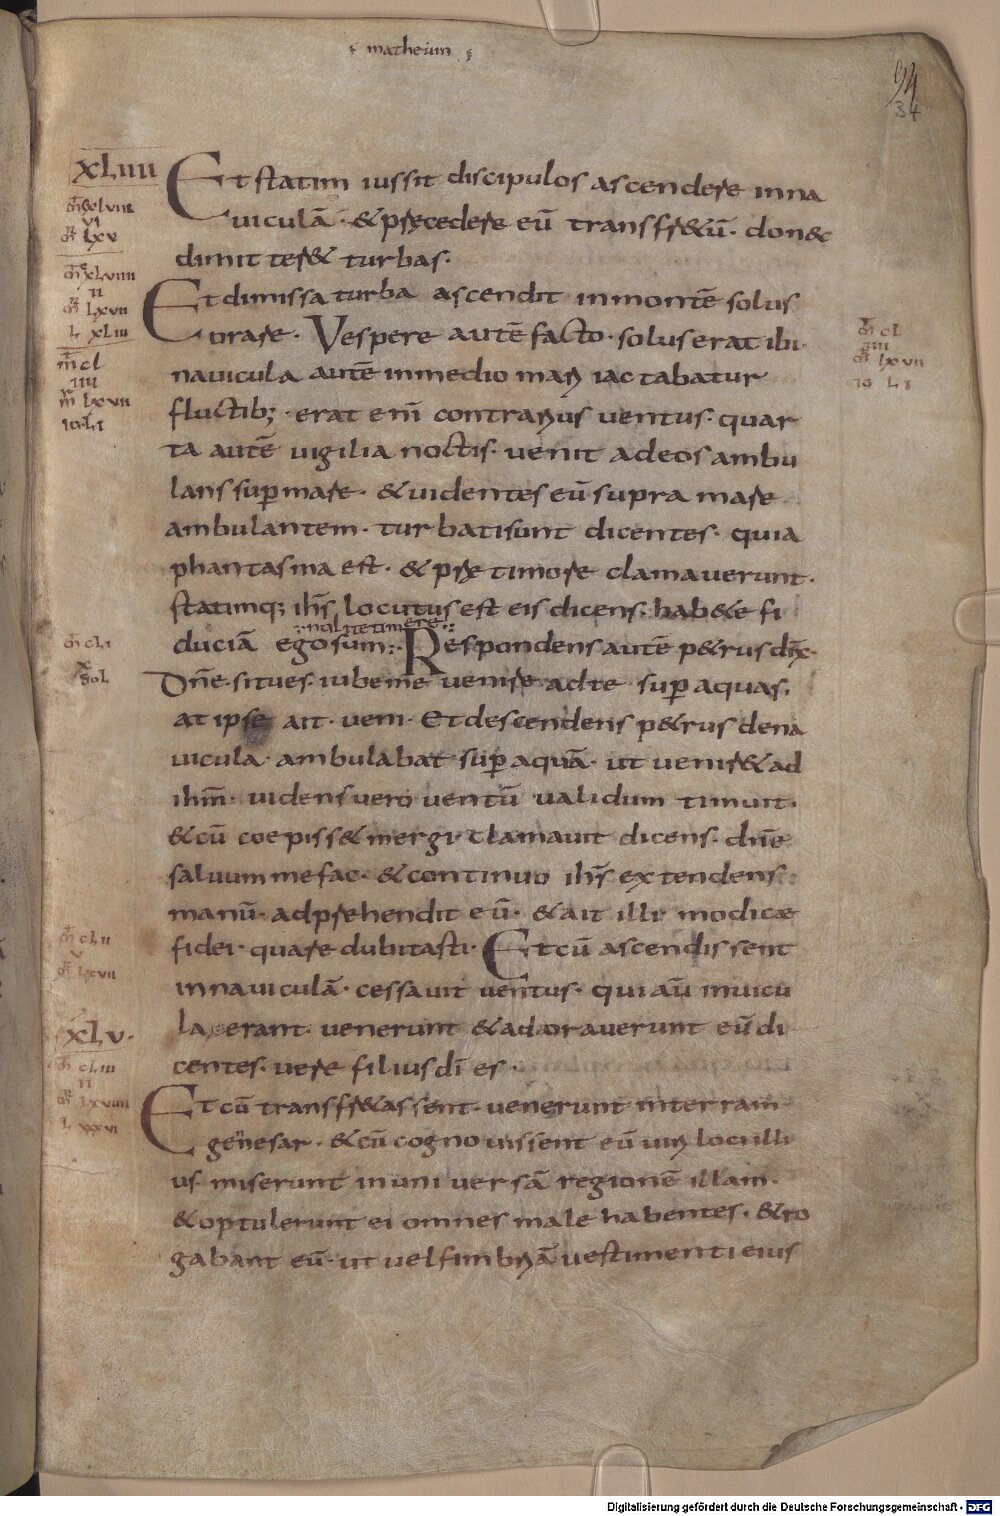 matheum
94
34
XLIIII
Et statim iussit discipulos ascendere inna
uiculā · & pręcedere eū transfr&ū · don&c
dimitter& turbas ·
Et dimissa turba ascendit inmontē solus
orare · Vespere autē facto · solus erat ibi ·
nauicula autē inmedio mari iactabatur
fluctib; · erat enī contrarius uentus · quar
ta autē uigilia noctis · uenit adeos ambu
lans sup mare · & uidentes eū supra mare
ambulantem · turbati sunt dicentes · quia
phantasma est · & prę timore clamauerunt ·
statimq; ihs locutus est eis dicens · hab&e fi
nolite timere
duciā ego sum · Respondens autē p&rus dix ·
Dn̄e · si tu es · iube me uenire ad te sup aquas ·
at ipse ait · ueni · Et descendens p&rus dena
uicula · ambulabat sup aquā · ut uenir& ad
ihm̄ · uidens uero uentū ualidum timuit ·
& cū coepiss& mergi · clamauit dicens · dn̄e
saluum me fac · & continuo ihs extendens
manū · adprehendit eū · & ait illi · modicæ
fidei · quare dubitasti · Et cū ascendissent
innauiculā · cessauit uentus · qui aū inuicu
la erant · uenerunt & adorauerunt eū di
centes · uere filius dī es ·
XLV ·
Et cū transfr&assent · uenerunt interram
genesar · & cū cognouissent eū uiri loci illi
us · miserunt inuniuersā regionē illam ·
& optulerunt ei omnes male habentes · & ro
gabant eū · ut uel fimbriā uestimenti eius
Digitalisierung gefördert durch die Deutsche Forschungsgemeinschaft - DFG